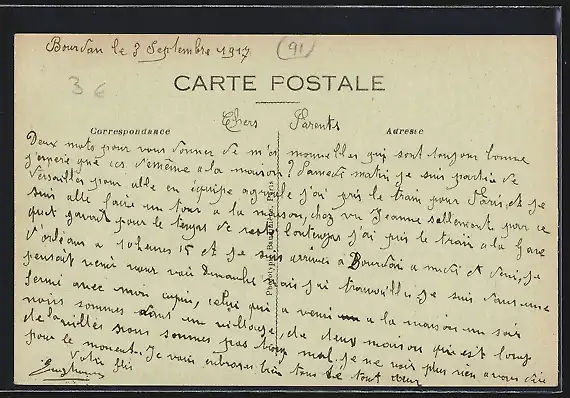 Bourdan le 3 Septembre 1917 (91)
3 €
CARTE POSTALE
Chers Parents
Correspondance Adresse
Deux mots pour vous donner de m'es nouvelles qui sont toujour bonne
j'espère que ces de même a la maison ? Samedi matin je suis partie de
Versailles pour allé en équipe agricole j'ai pris le train pour Paris, et je
suis allé faire un tour a la maison, chez vu Jeanne sellement pour ce
quet pour le temps de j'ai pris le train a la Gare
d'orléan a 10 heures 15 et je suis arrives à Bourdan a midi et demi, je
pensait venir vous voir Dimanche je suis dans une
fermé avec mon copin, celui qui a venu a la maison un soir
nous sommes dant un village, de deux maison qui est loup
de la villes nous sommes pas mal, je ne voit plus rien a vous dire
pour le moment. Je vous embrasse bien tous de tout cœur
Votre fils
Phototypie Baudinière, Paris